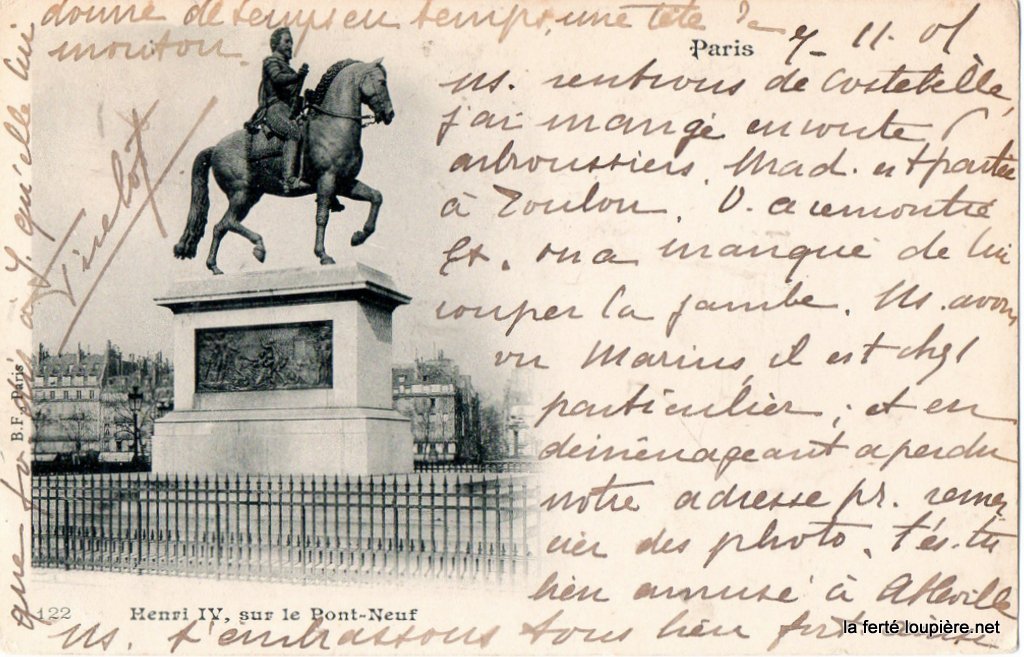 Paris
7-11.01
ns. rentrons de Costebelle,
j'ai mangé en route 6
arboussiers. Mad. est partie
à Toulon. V. a rencontré
Gt. on a manqué de lui
couper la jambe. Ns. avons
vu Marius, il est chez
particulier; et en
déménageant a perdu
notre adresse pr. remer
cier des photo. t'es-tu
bien amusé à Abbeville
Ns. t'embrassons tous bien fort
que
à J. qu'elle lui
donne de temps en temps, une tête de
mouton.
B.F., Paris
122 Henri IV, sur le Pont-Neuf
la ferté loupière.net